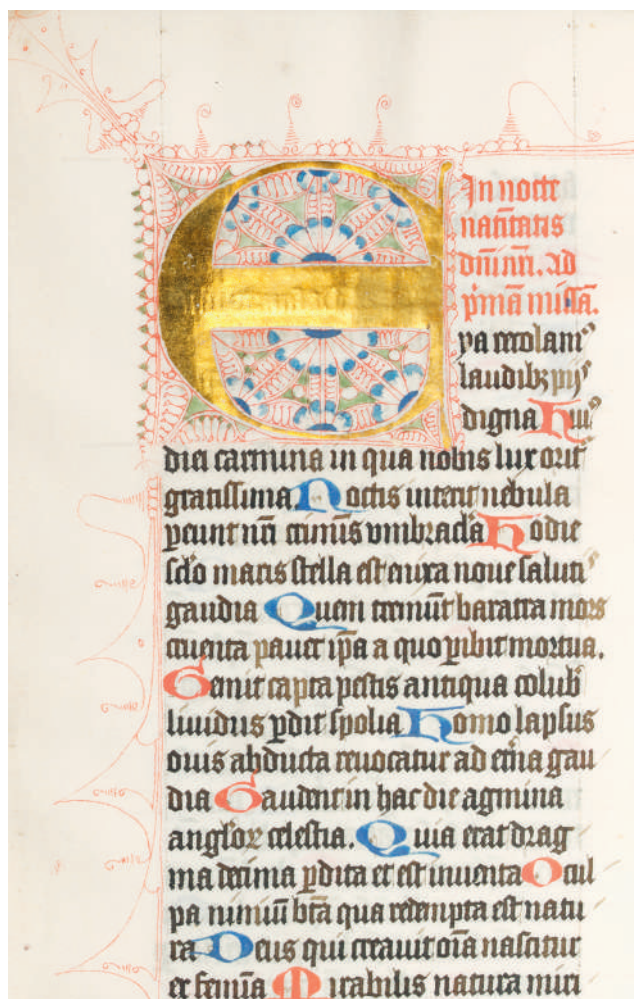 E
In nocte
natiuitatis
dn̄i nr̄i. ad
p̄mā missā.
ya recolamꝰ
laudibꝫ pijs
digna Huiꝰ
diei carmina in qua nobis lux orit᷑
gratissima Noctis interit nebula
ꝑeunt nr̄i criminis vmbracula Hodie
sclo maris stella est enixa noue salutiˢ
gaudia Quem tremūt baratra mors
cruenta pauet ip̄a a quo ꝑibit mortua.
Gemit capta pestis antiqua colubˀ
liuidus ꝑdit spolia Homo lapsus
ouis abducta reuocatur ad et̄na gau
dia Gaudent in hac die agmina
angłoꝝ celestia. Quia erat drag
ma decima ꝑdita et est inuenta O cul
pa nimiū bt̄a qua redempta est natu
ra Deus qui creauit oīa nascitur
ex femīa Mirabilis natura miri